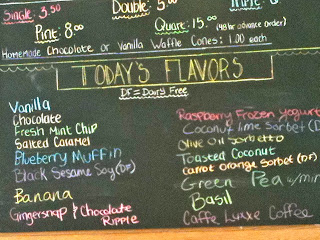 Single: 3.50 Double: 5.
Pint: 8.00 Quart: 15.00 (48 hr advance order)
Homemade Chocolate or Vanilla Waffle Cones: 1.00 each
TODAY'S FLAVORS
DF = Dairy Free
Vanilla
Chocolate
Fresh Mint Chip
Salted Caramel
Blueberry Muffin
Black Sesame Soy (DF)
Banana
Gingersnap & Chocolate
Ripple
Raspberry Frozen Yogurt
Coconut Lime Sorbet (D
Olive Oil Sorbetto
Toasted Coconut
Carrot Orange Sorbet (DF)
Green Pea w/min
Basil
Caffe Luxxe Coffee